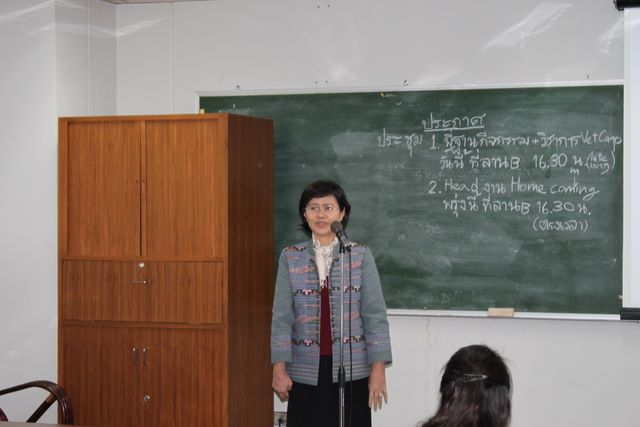 ประกาศ
ประชุม 1. พี่ฐานกิจกรรม+วิชาการ Vet Camp
วันนี้ ที่ลานB 16.30 น.
2. Head งาน Home coming
พรุ่งนี้ ที่ลานB 16.30 น.
(ตรงเวลา)